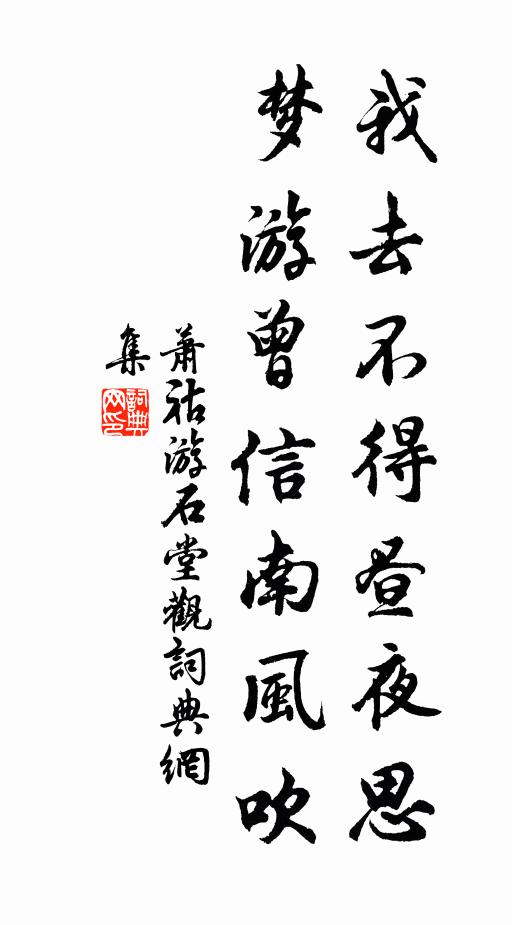 我去不得昼夜思
梦游曾信南風吹
萧祜游石堂觀詞典網
集
詞典网印